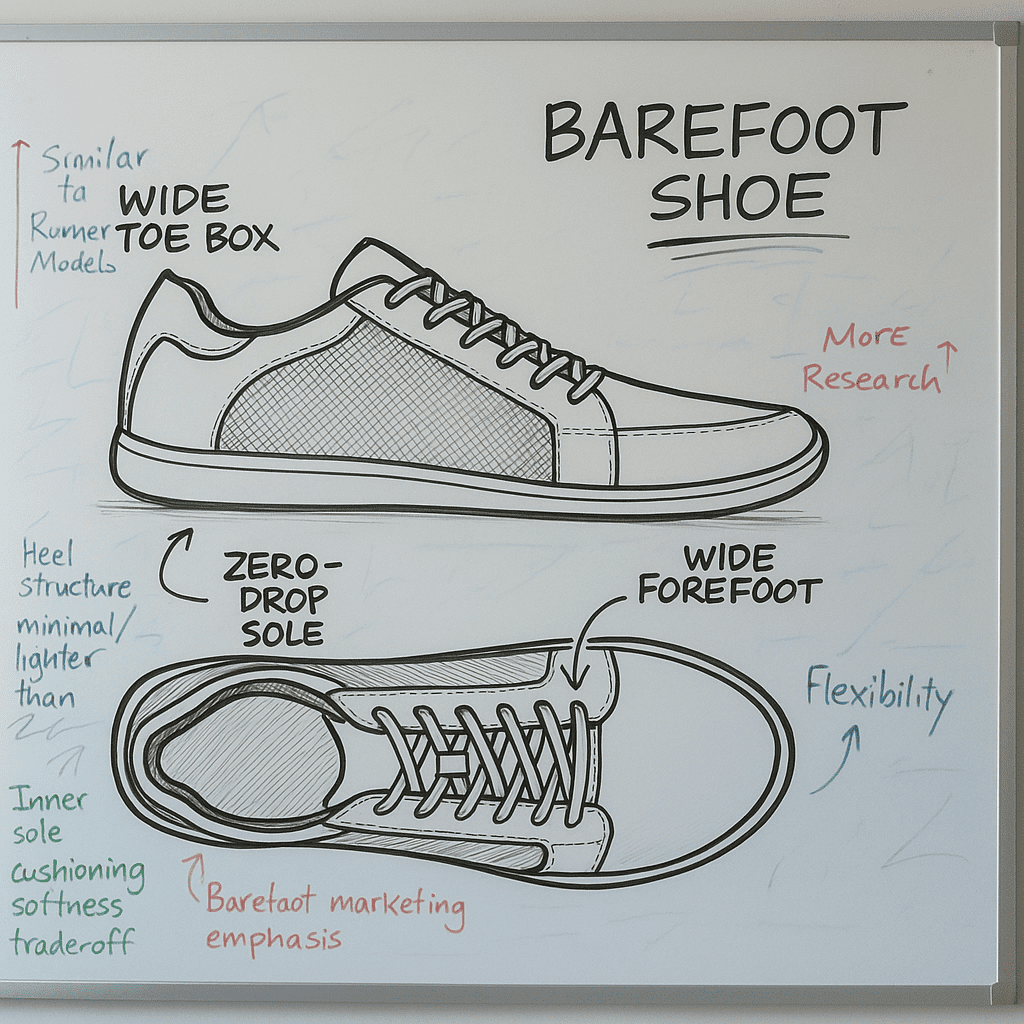 BAREFOOT
SHOE
Similar
ta
Rumer
Models
WIDE
TOE BOX
MorE
Research
Heel
structure
minimal/
lighter
than
ZERO-
DROP
SOLE
WIDE
FOREFOOT
Flexibility
Inner
sole
cushioning
softness
traderoff
Barefaot marketing
emphasis